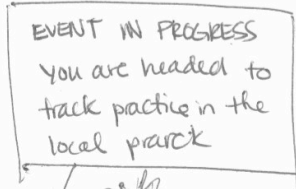 EVENT IN PROGRESS
You are headed to
track practice in the
local prarck